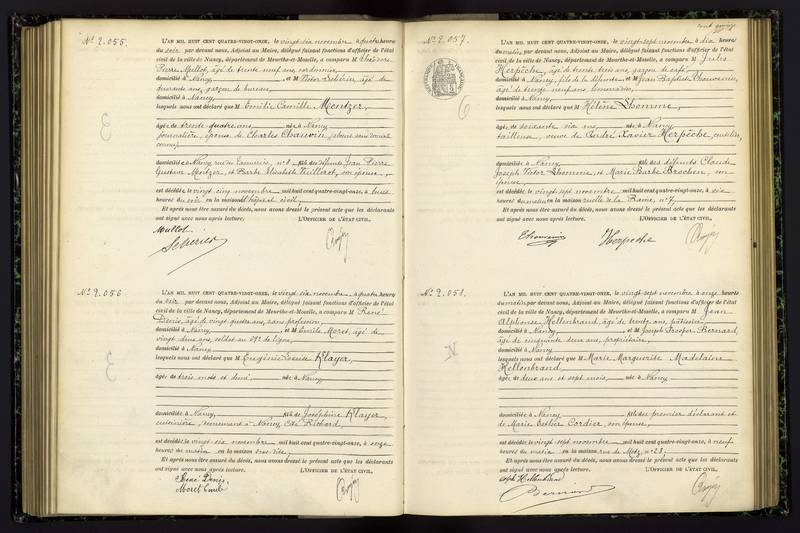 N° 2.055.
L'AN MIL HUIT CENT QUATRE-VINGT-ONZE, le vingt-six novembre à quatre heures
du soir par devant nous, Adjoint au Maire, délégué faisant fonctions d'officier de l'état
civil de la ville de Nancy, département de Meurthe-et-Moselle, a comparu M
Pierre Mullot, âgé de trente neuf ans, cordonnier,
domicilié à Nancy et M Victor âgé de
quarante ans, garçon de bureau,
domicilié à Nancy
lesquels nous ont déclaré que M Emilie Camille Mentzer,
âgée de trente-quatre ans née à Nancy
journalière, épouse de Charles Chauvin, absent sans
connu,
domiciliée à Nancy, rue n° 8 fille des défunts Jean Pierre
Gustave Mentzer, et Barbe Elisabeth son épouse,
est décédée, le vingt cinq novembre mil huit cent quatre-vingt-onze, à
heures du soir en la maison hôpital civil,
Et après nous être assuré du décès, nous avons dressé le présent acte que les déclarants
ont signé avec nous après lecture. L'OFFICIER DE L'ÉTAT CIVIL,
Mullot
N° 2.056
L'AN MIL HUIT CENT QUATRE-VINGT-ONZE, le vingt-six novembre à quatre heures
du soir par devant nous, Adjoint au Maire, délégué faisant fonctions d'officier de l'état
civil de la ville de Nancy, département de Meurthe-et-Moselle, a comparu M René
Denis, âgé de vingt-quatre ans, sans profession
domicilié à Nancy et M Emile Moret, âgé de
vingt-deux ans, soldat au de ligne,
domicilié à Nancy
lesquels nous ont déclaré que M Eugénie Louise Klayer,
âgée de trois mois et demi, née à Nancy
domiciliée à Nancy, fille de Joséphine Klayer,
cuisinière, demeurant à Nancy,
est décédée, le vingt-six novembre mil huit cent quatre-vingt-onze, à onze
heures du matin en la maison
Et après nous être assuré du décès, nous avons dressé le présent acte que les déclarants
ont signé avec nous après lecture. L'OFFICIER DE L'ÉTAT CIVIL,
René Denis
Moret Emile
N° 2.057
L'AN MIL HUIT CENT QUATRE-VINGT-ONZE, le vingt-sept novembre à dix heures
du matin, par devant nous, Adjoint au Maire, délégué faisant fonctions d'officier de l'état
civil de la ville de Nancy, département de Meurthe-et-Moselle, a comparu M Jules
Herpêche, âgé de trente trois ans, garçon de café,
domicilié à Nancy, fils de la défunte et M Jean Baptiste
âgé de trente neuf ans,
domicilié à Nancy,
lesquels nous ont déclaré que M Hélène Lhomme,
âgée de soixante six ans née à Nancy
tailleuse, veuve de André Xavier Herpêche,
domiciliée à Nancy fille des défunts Claude
Joseph Victor Lhomme, et Marie Barbe son
épouse
est décédée, le vingt sept novembre mil huit cent quatre-vingt-onze, à six
heures du matin en la maison ruelle de la n° 7,
Et après nous être assuré du décès, nous avons dressé le présent acte que les déclarants
ont signé avec nous après lecture. L'OFFICIER DE L'ÉTAT CIVIL,
Herpeche
N° 2.058.
L'AN MIL HUIT CENT QUATRE-VINGT-ONZE, le vingt-sept novembre à onze heures
du matin, par devant nous, Adjoint au Maire, délégué faisant fonctions d'officier de l'état
civil de la ville de Nancy, département de Meurthe-et-Moselle, a comparu M Jean
Alphonse Hellenbrand, âgé de trente ans,
domicilié à Nancy et M Joseph Prosper Bernard,
âgé de cinquante deux ans, propriétaire,
domicilié à Nancy
lesquels nous ont déclaré que M Marie Marguerite Madelaine
Hellenbrand,
âgée de deux ans et sept mois, née à Nancy
domiciliée à Nancy fille du premier déclarant et
de Marie Esther Cordier, son épouse,
est décédée, le vingt sept novembre mil huit cent quatre-vingt-onze, à neuf
heures du matin en la maison rue de Metz, n° 28,
Et après nous être assuré du décès, nous avons dressé le présent acte que les déclarants
ont signé avec nous après lecture. L'OFFICIER DE L'ÉTAT CIVIL,
Hellenbrand
Bernard